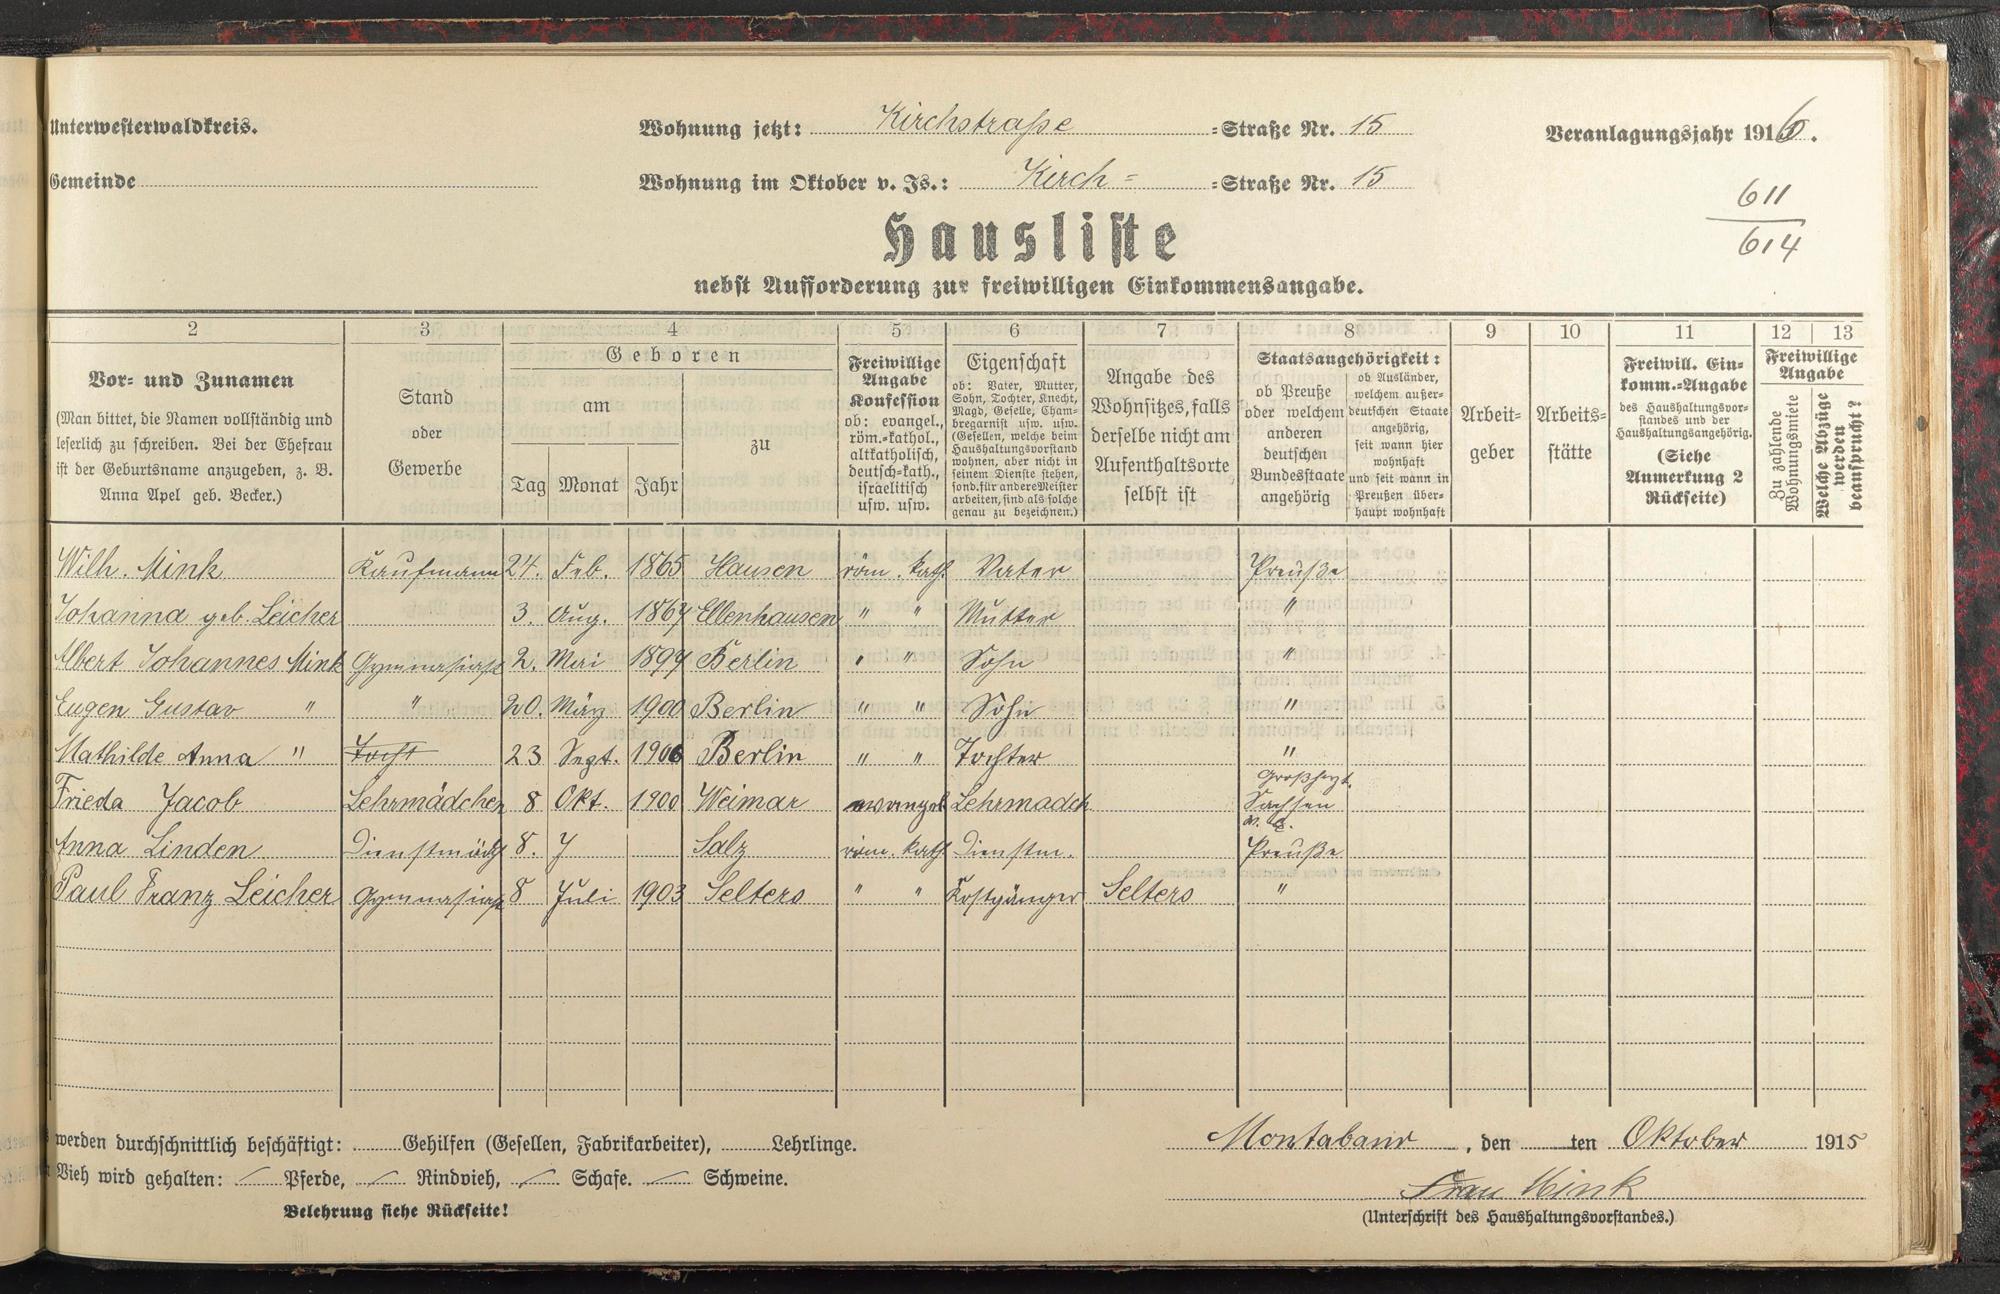 Unterwesterwaldkreis.
Wohnung jetzt: Kirchstraße =Straße Nr. 15
Veranlagungsjahr 1916.
Gemeinde
Wohnung im Oktober v. Js.: Kirch= =Straße Nr. 15
611
614
Hausliste
nebst Aufforderung zur freiwilligen Einkommensangabe.
2 3 4 5 6 7 8 9 10 11 12 13
Vor- und Zunamen
(Man bittet, die Namen vollständig und
leserlich zu schreiben. Bei der Ehefrau
ist der Geburtsname anzugeben, z. B.
Anna Apel geb. Becker.)
Stand
oder
Gewerbe
Geboren
am
Tag Monat Jahr
zu
Freiwillige
Angabe
Konfession
ob: evangel.,
röm.-kathol.,
altkatholisch,
deutsch-kath.,
israelitisch
usw. usw.
Eigenschaft
ob: Vater, Mutter,
Sohn, Tochter, Knecht,
Magd, Geselle, Cham-
bregarnist usw. usw.
(Gesellen, welche beim
Haushaltungsvorstand
wohnen, aber nicht in
seinem Dienste stehen,
sond. für andere Meister
arbeiten, sind als solche
genau zu bezeichnen.)
Angabe des
Wohnsitzes, falls
derselbe nicht am
Aufenthaltsorte
selbst ist
Staatsangehörigkeit:
ob Preuße
oder welchem
anderen
deutschen
Bundesstaate
angehörig
ob Ausländer,
welchem außer-
deutschen Staate
angehörig,
seit wann hier
wohnhaft
und seit wann in
Preußen über-
haupt wohnhaft
Arbeit-
geber
Arbeits-
stätte
Freiwill. Ein-
komm.-Angabe
des Haushaltungsvor-
standes und der
Haushaltungsangehörig.
(Siehe
Anmerkung 2
Rückseite)
Freiwillige
Angabe
Zu zahlende
Wohnungsmiete
Welche Abzüge
werden
beansprucht?
Wilh. Mink Kaufmann 24. Feb. 1865 Hausen röm. kath. Vater Preuße
Johanna geb. Leicher 3. Aug. 1867 Ellenhausen " " Mutter "
Albert Johannes Mink Gymnasiast 2. Mai 1897 Berlin " " Sohn "
Eugen Gustav " " 20. März 1900 Berlin " " Sohn "
Mathilde Anna " Tocht 23 Sept. 1906 Berlin " " Tochter "
Frieda Jacob Lehrmädchen 8 Okt. 1900 Weimar evangel Lehrmädch Großherzt. Sachsen
Anna Linden Dienstmädch 8. J Salz röm. kath. Dienstm. Preuße
Paul Franz Leicher Gymnasiast 8 Juli 1903 Selters " " Kostgänger Selters "
werden durchschnittlich beschäftigt: Gehilfen (Gesellen, Fabrikarbeiter), Lehrlinge.
Montabaur, den ten Oktober 1915
Vieh wird gehalten: Pferde, Rindvieh, Schafe. Schweine.
Frau Mink
Belehrung siehe Rückseite!
(Unterschrift des Haushaltungsvorstandes.)